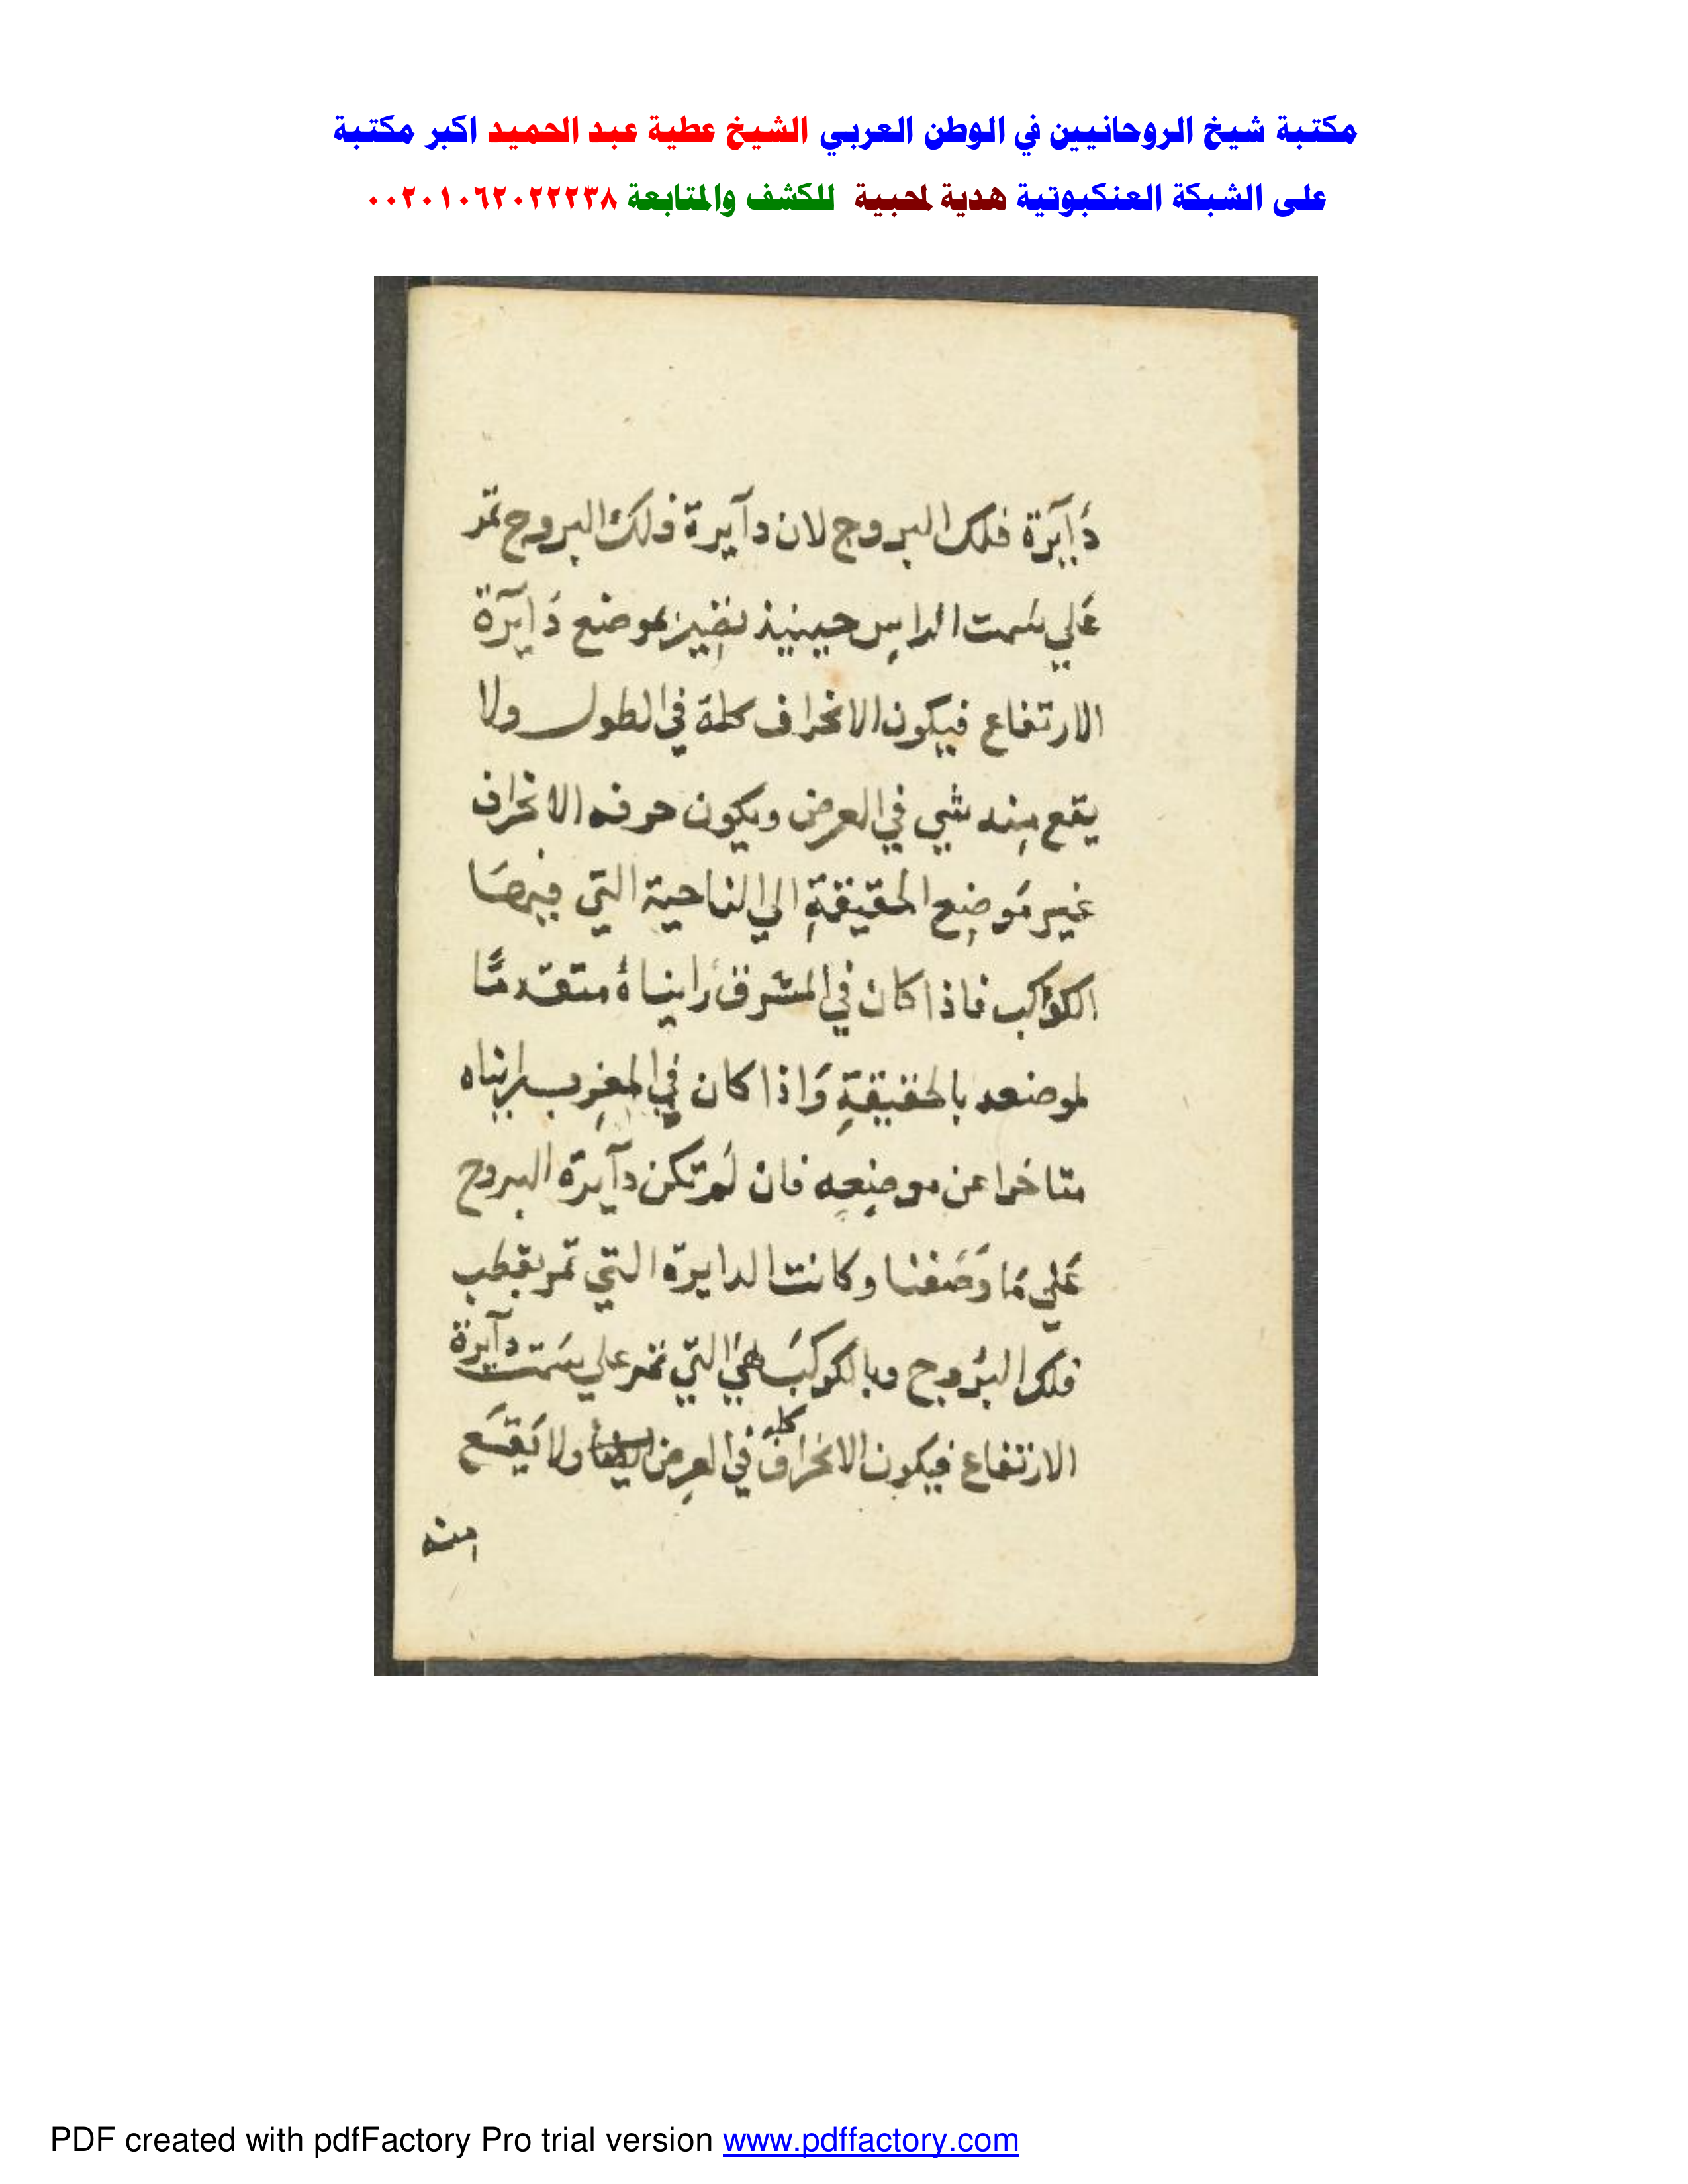 مكتبة شيخ الروحانيين في الوطن العربي الشيخ عطية عبد الحميد اكبر مكتبة
على الشبكة العنكبوتية هدية لمحبية للكشف والمتابعة ٠٠٢٠١٠٦٢٠٢٢٢٣٨
دَايَرة فلك البروج لان دآيرة فلك البروج تمّر
عَلي سَمت الراسِ حينيذ بموضع دَايرَة
الارتفاع فيكون الانحراف كلهُ في الطول ولا
يقع مِنه شي في العرض ويكون الانحراف
غير مَوضِع الحقيقةِ الي الناحية التي فيهَا
الكوَاكب فاذا كان في المشرق رَايناهُ متقدمًا
لموضعه بالحقيقةِ وَاذا كان في المغرِب رايناه
متاخرا عن موضِعِه فان لَم تكن دآيرة البروج
عَلي مَا وَصَفنا وكانت الدايرة التي تمر بقطب
فلك البُروج وبالكوكبَ هيَ التي تمر علي سَمت دآيرة
الارتفاع فيكون الانحراف كله في العرِض ولا يَقَع
منه
PDF created with pdfFactory Pro trial version www.pdffactory.com